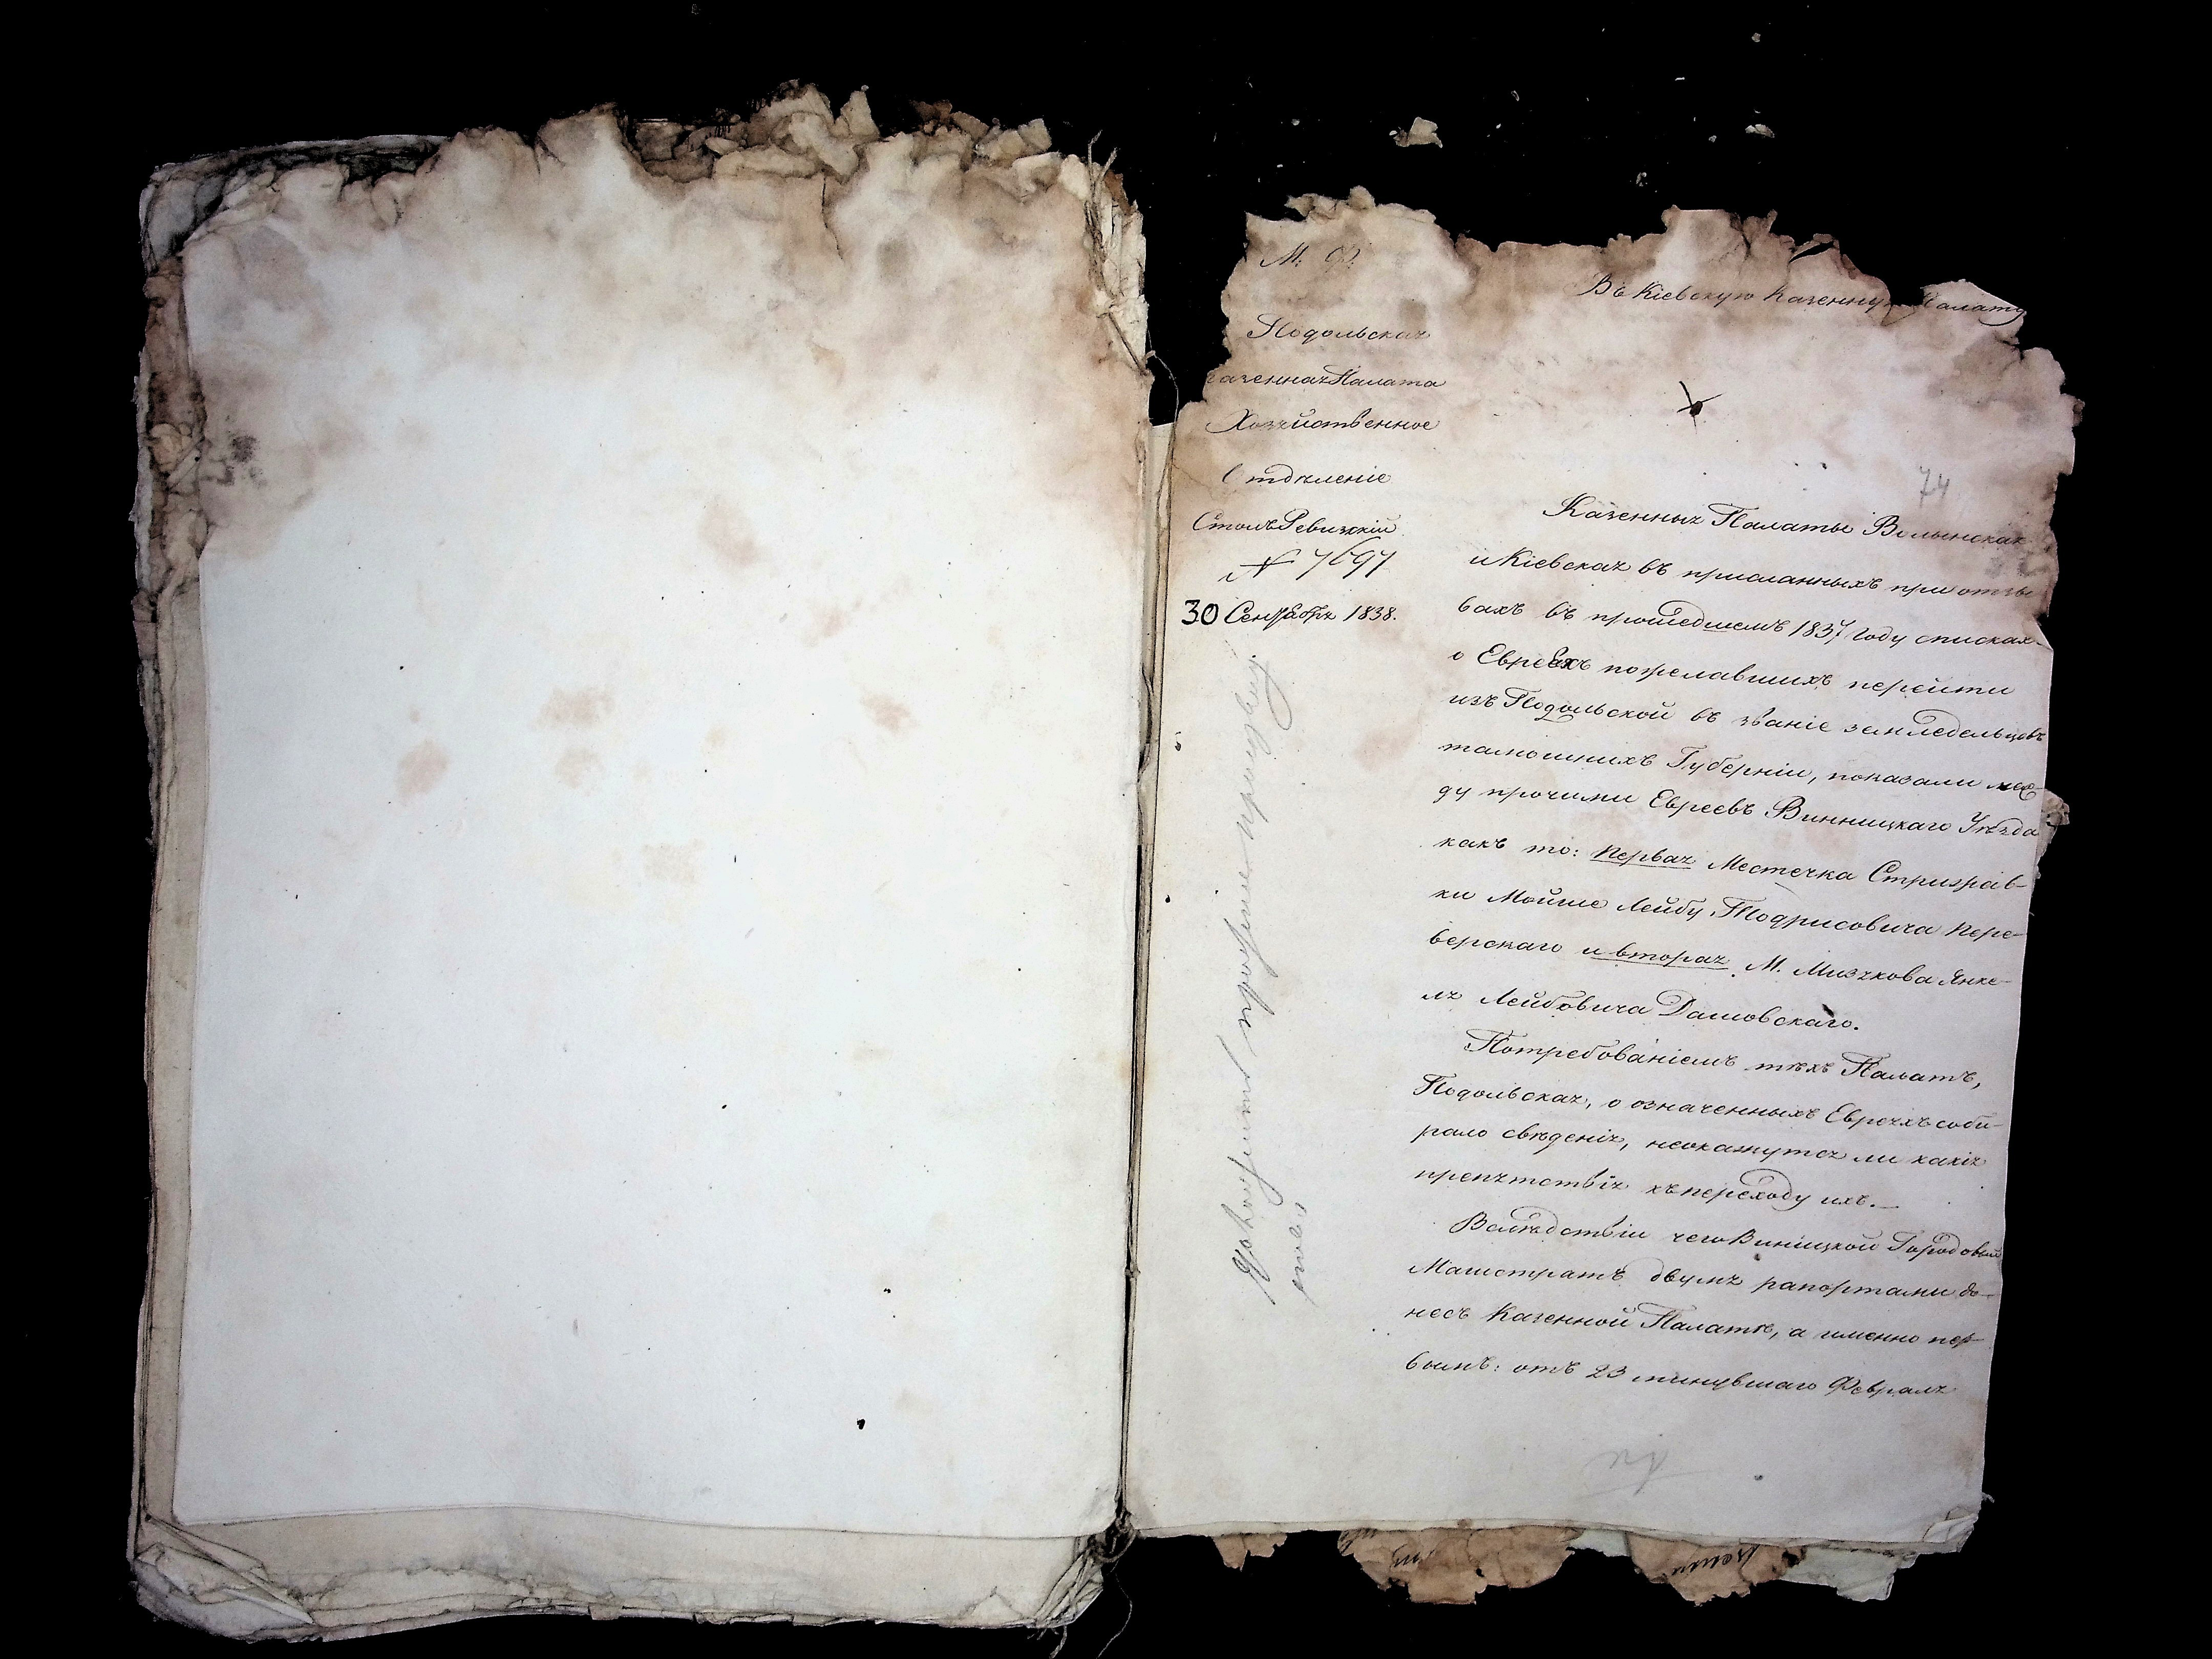 М. Ф.
Подольская
Казенная Палата
Хозяйственное
Отдѣленіе
Столъ Ревизскій
№ 7697
30 Сентября 1838.
Въ Кіевскую Казенную Палату
74
Казенныя Палаты Волынская
и Кіевская въ присланныхъ при отзы
вахъ въ прошедшемъ 1837 году спискахъ
о Евреяхъ пожелавшихъ перейти
изъ Подольской въ званіе земледельцовъ
тамошнихъ Губерніи, показали меж-
ду прочими Евреевъ Винницкаго Уѣзда
какъ то: первая Местечка Стрижав-
ки Мойше Лейбу Тодрисовича Пере-
верскаго и вторая М. Мизякова Янке-
ля Лейбовича Дашовскаго.
Потребованіемъ тѣхъ Палатъ,
Подольская, о означенныхъ Евреяхъ соби-
рало свѣденія, неокажутся ли какія
препятствія къ переходу ихъ.—
Вслѣдствіи чего Виницкой Городовый
Магистратъ двумя рапортами до-
несъ Казенной Палатѣ, а именно пер-
вымъ: отъ 23 минувшаго Февраля